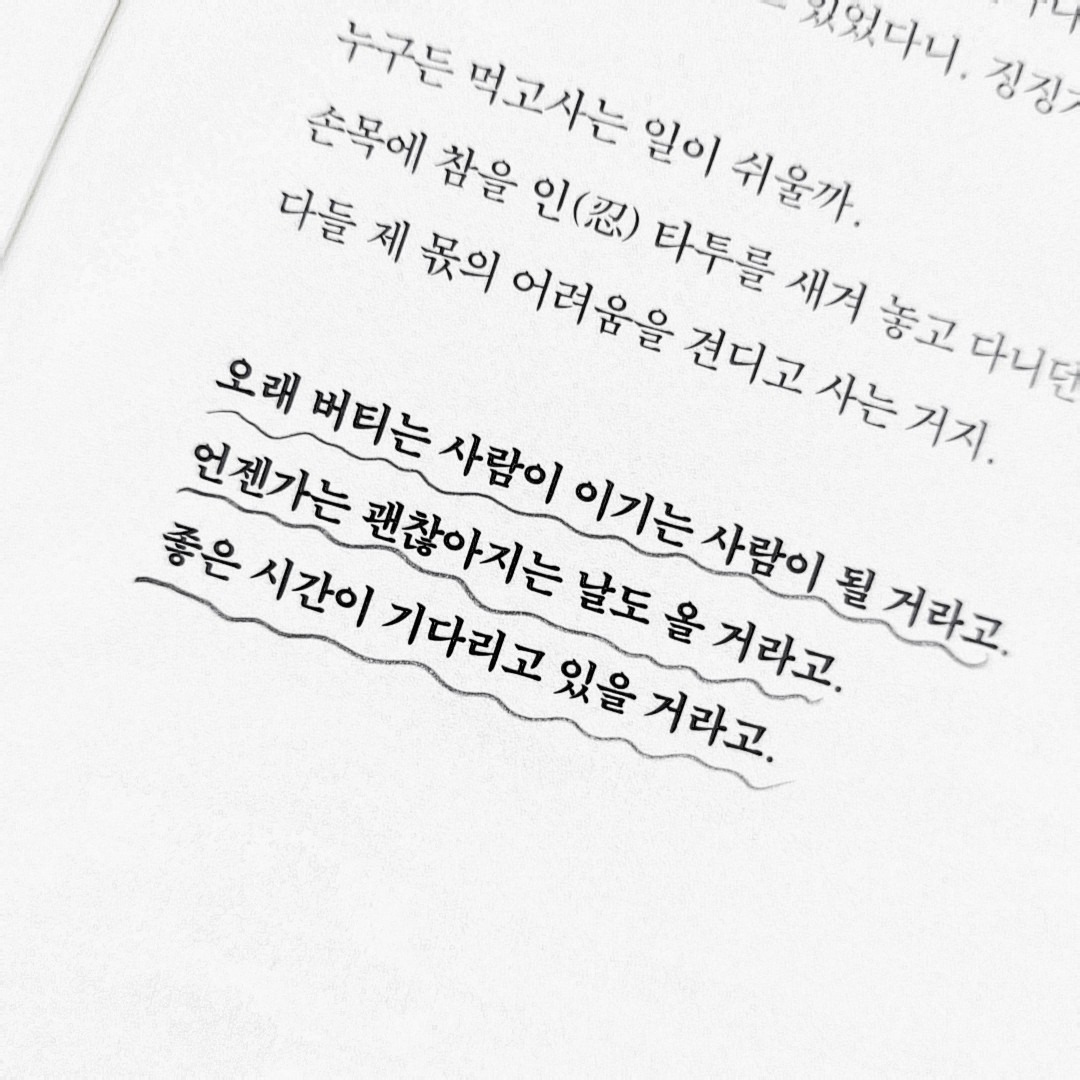 있었다니. 징징
누구든 먹고사는 일이 쉬울까.
손목에 참을 인(忍) 타투를 새겨 놓고 다니던
다들 제 몫의 어려움을 견디고 사는 거지.
오래 버티는 사람이 이기는 사람이 될 거라고.
언젠가는 괜찮아지는 날도 올 거라고.
좋은 시간이 기다리고 있을 거라고.